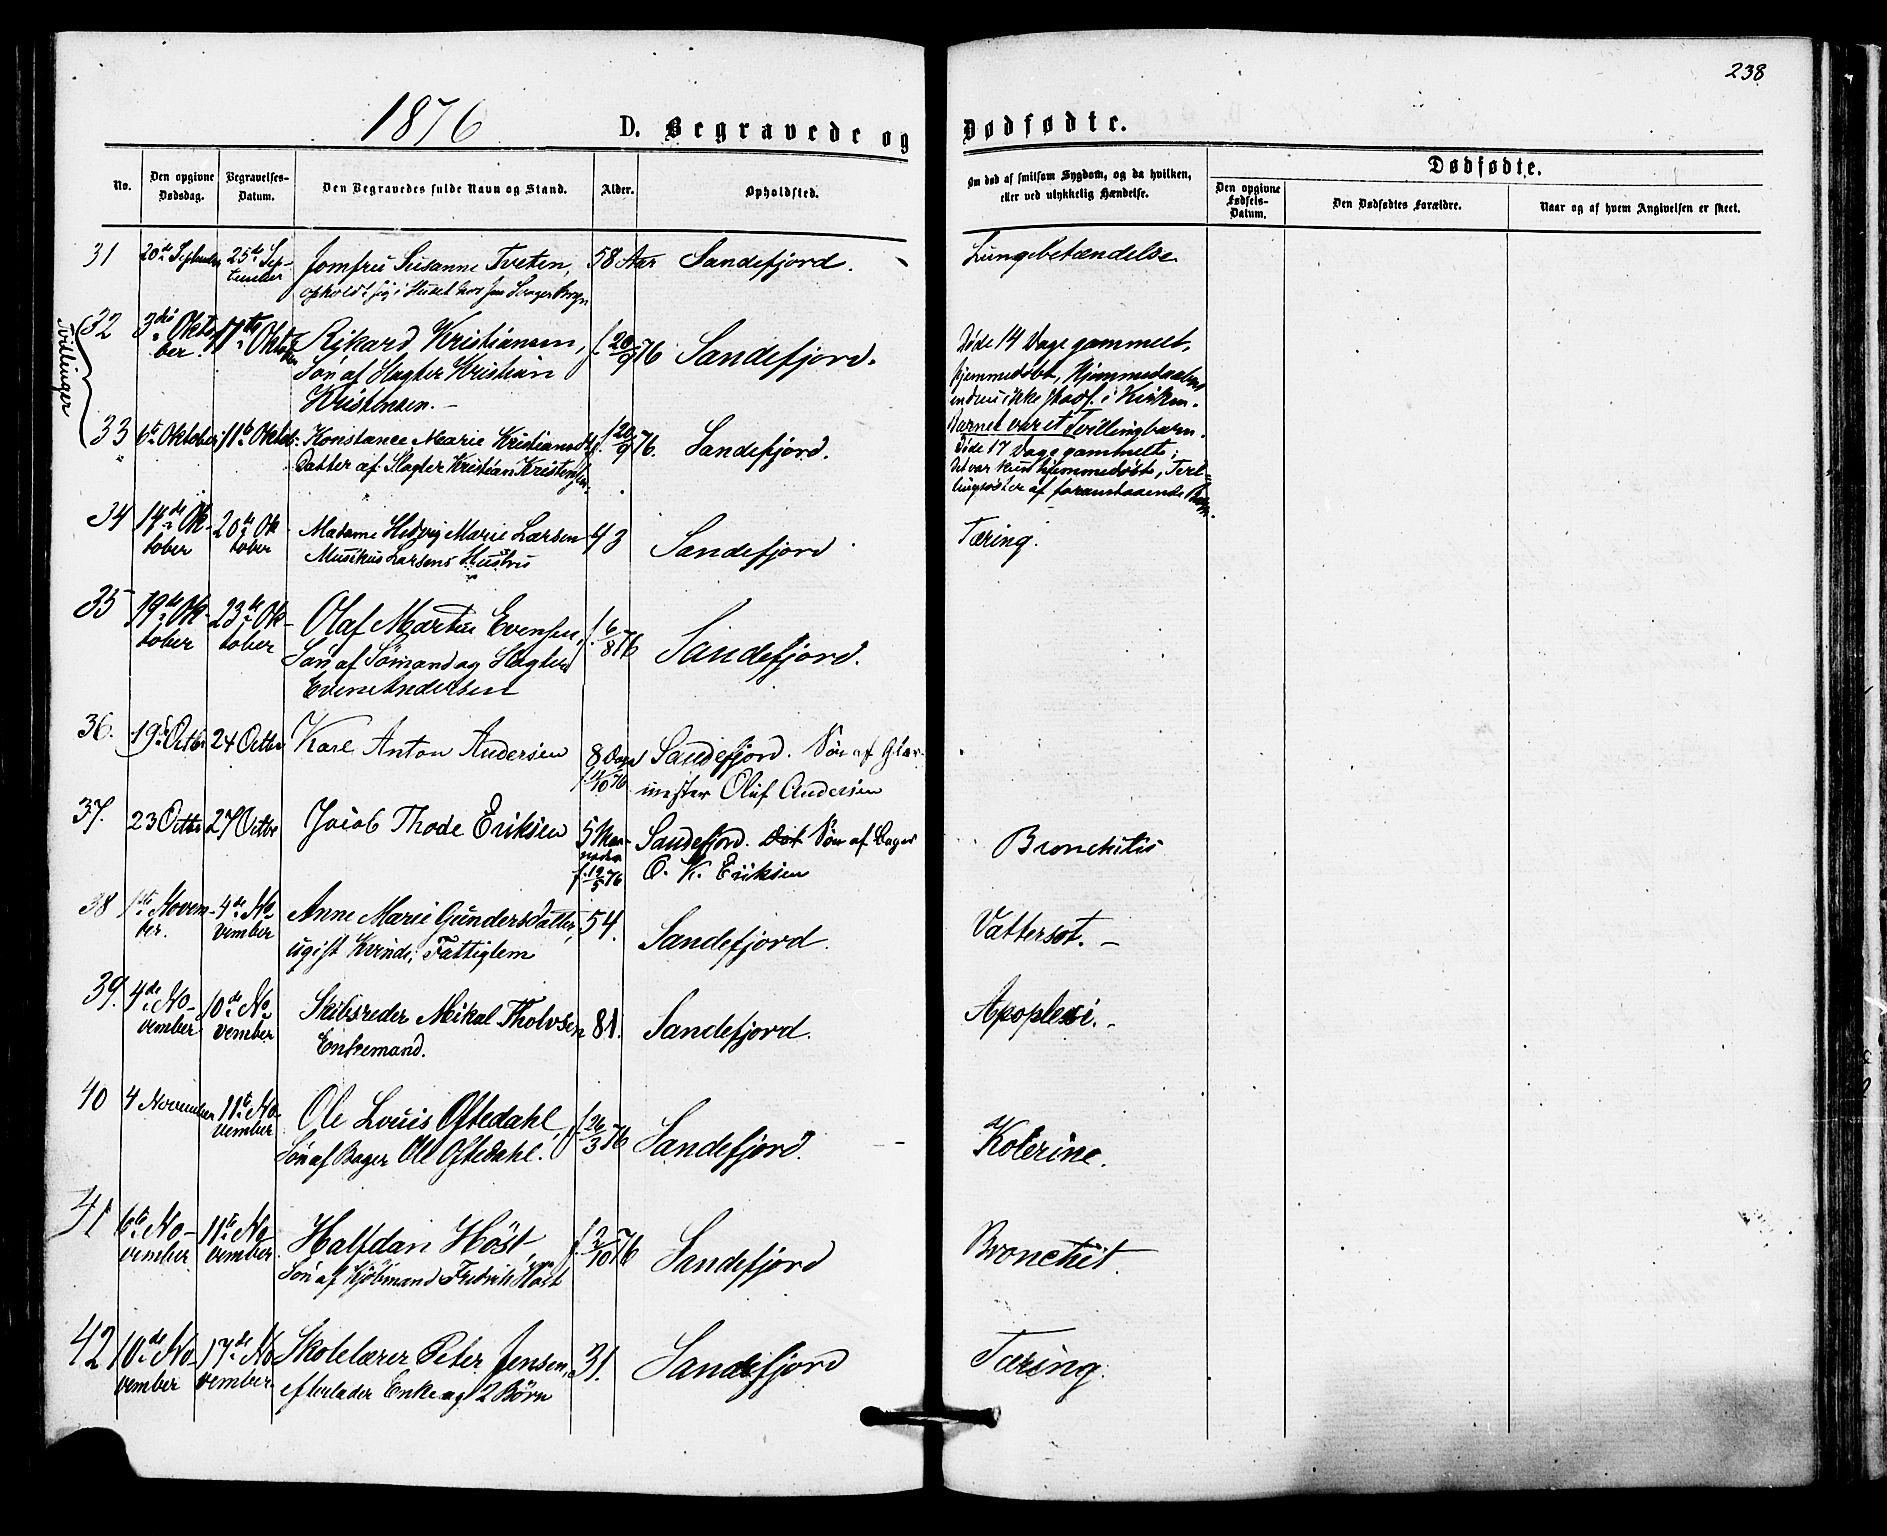 238
1876
D. Begravede og Dødfødte.
No.
Den opgivne Dødsdag.
Begravelses-Datum.
Den Begravedes fulde Navn og Stand.
Alder.
Opholdsted.
Om død af smitsom Sygdom, og da hvilken, eller ved ulykkelig Hændelse.
Dødfødte.
Den opgivne Fødsels-Datum.
Den Dødfødtes Forældre.
Naar og af hvem Angivelsen er skeet.
31 20de September 25de September Jomfru Susanne Tveten, 58 Aar Sandefjord. Lungebetændelse
opholdt sig i Huset hos
Tvillinger
32 3die Oktober 11te Oktober Rikard Kristiansen, f. 20/9 76 Sandefjord.
Søn af Slagter Kristian
Kristensen.
Døde 14 Dage gammelt,
hjemmedøbt, Hjemmedaaben
endnu ikke stadf. i Kirken.
Barnet var et Tvillingbarn.
33 6te Oktober 11te Oktob. Konstance Marie Kristiansdtr f. 20/9 76. Sandefjord.
Datter af Slagter Kristian Kristensen.
Døde 17 Dage gammelt;
Det var kun hjemmedøbt, Tvil-
lingsøster af foranstaaende Barn.
34 14de Oktober 20de Oktober Madame Hedvig Marie Larsen 43 Sandefjord Tæring.
Musikus Larsens Hustru
35 19de Oktober 23de Oktober Olaf Martin Evensen, f. 6/8 76 Sandefjord.
Søn af Sømand og Slagter
Even Andersen
36. 19de Octbr 24 Octbr Karl Anton Andersen 8 Dage f. 11/10 76 Sandefjord. Søn af Glar-
mester Oluf Andersen
37. 23 Octbr 27 Octbr Jacob Thode Eriksen 5 Maaneder f. 19/5 76 Sandefjord. Dat Søn af Bager
O. K. Eriksen
Bronchitis
38 1ste November. 4de November Anne Marie Gundersdatter, 54. Sandefjord. Vattersot. –
ugift Kvinde, Fattiglem
39. 4de November 10de November Skibsreder Mikal Tholvsen 81. Sandefjord. Apoplexi. –
Enkemand.
40 4 November 11te November Ole Louis Oftedahl, f. 26/3 76 Sandefjord. Kolerine.
Søn af Bager Ole Oftedahl.
41 6te November 11te November Halfdan Höst, f. 2/10 76 Sandefjord Bronchit.
Søn af Kjøbmand Fredrik Höst
42 10de November 17de November Skolelærer Peter Jensen, 31. Sandefjord Tæring.
efterlader Enke og 2 Börn